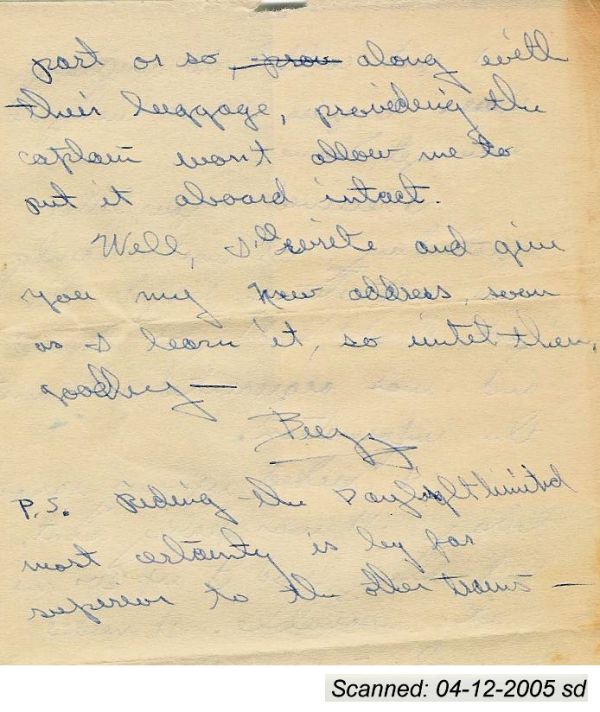 part or so, along with
their luggage, providing the
captain won't allow me to
put it aboard intact.
Well, I'll write and give
you my new address, soon
as I learn it, so until then,
goodbuy —
P.S. Riding the Daylight Limited
most certainty is by far
superior to the other trains —
Scanned: 04-12-2005 sd